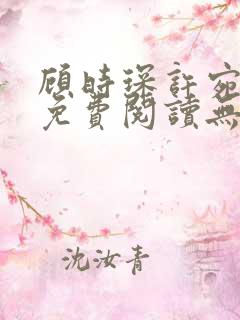 顾時琛許宛
免費閱讀無
沈汝青